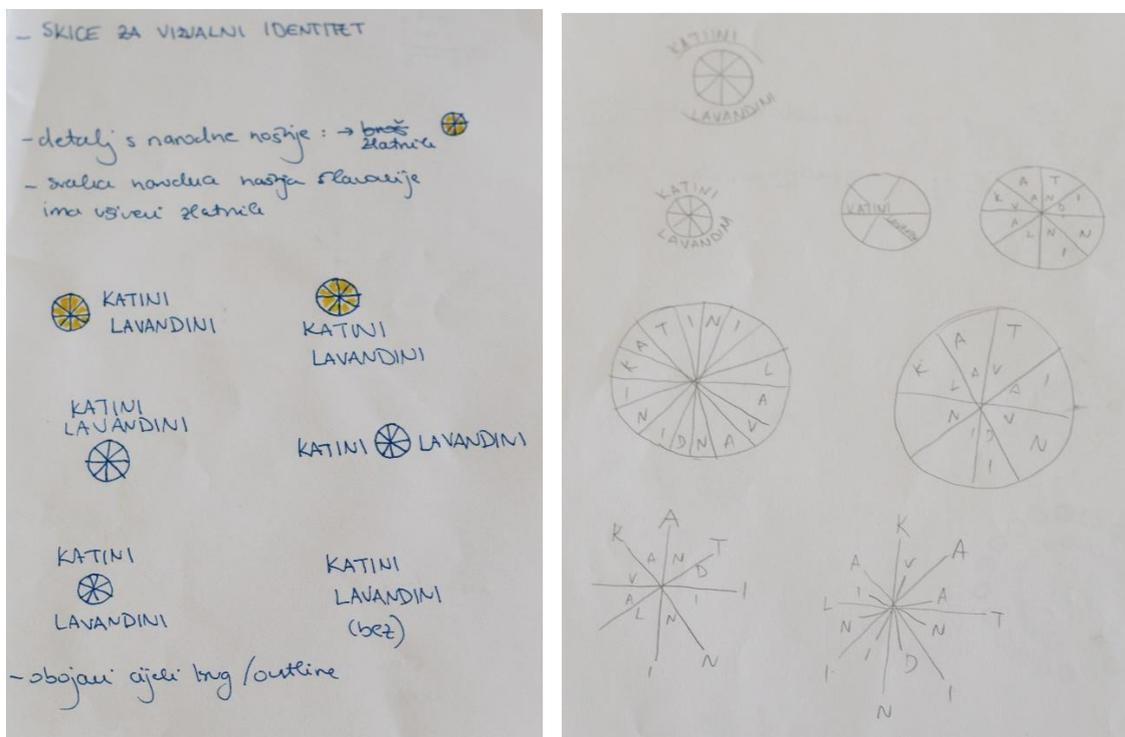 - SKICE ZA VIZUALNI IDENTITET
- detalj s narodne nošnje : → broš
zlatnik
- svaka narodna nošnja Slavonije
ima všiveni zlatnik
KATINI
LAVANDINI
KATINI
LAVANDINI
KATINI
LAVANDINI
KATINI LAVANDINI
KATINI
LAVANDINI
KATINI
LAVANDINI
(bez)
- obojani cijeli krug / outline
KATIINI
LAVANDINI
KATINI
LAVANDIM
KATINI
K A T I N I
L A V A N D I N
K A T I I N I
L A V A N D I N I
K A T I N
L A V A N D I I
K A T I N I
L A V A N D I N
K A T I N I
L A V A N D I N I